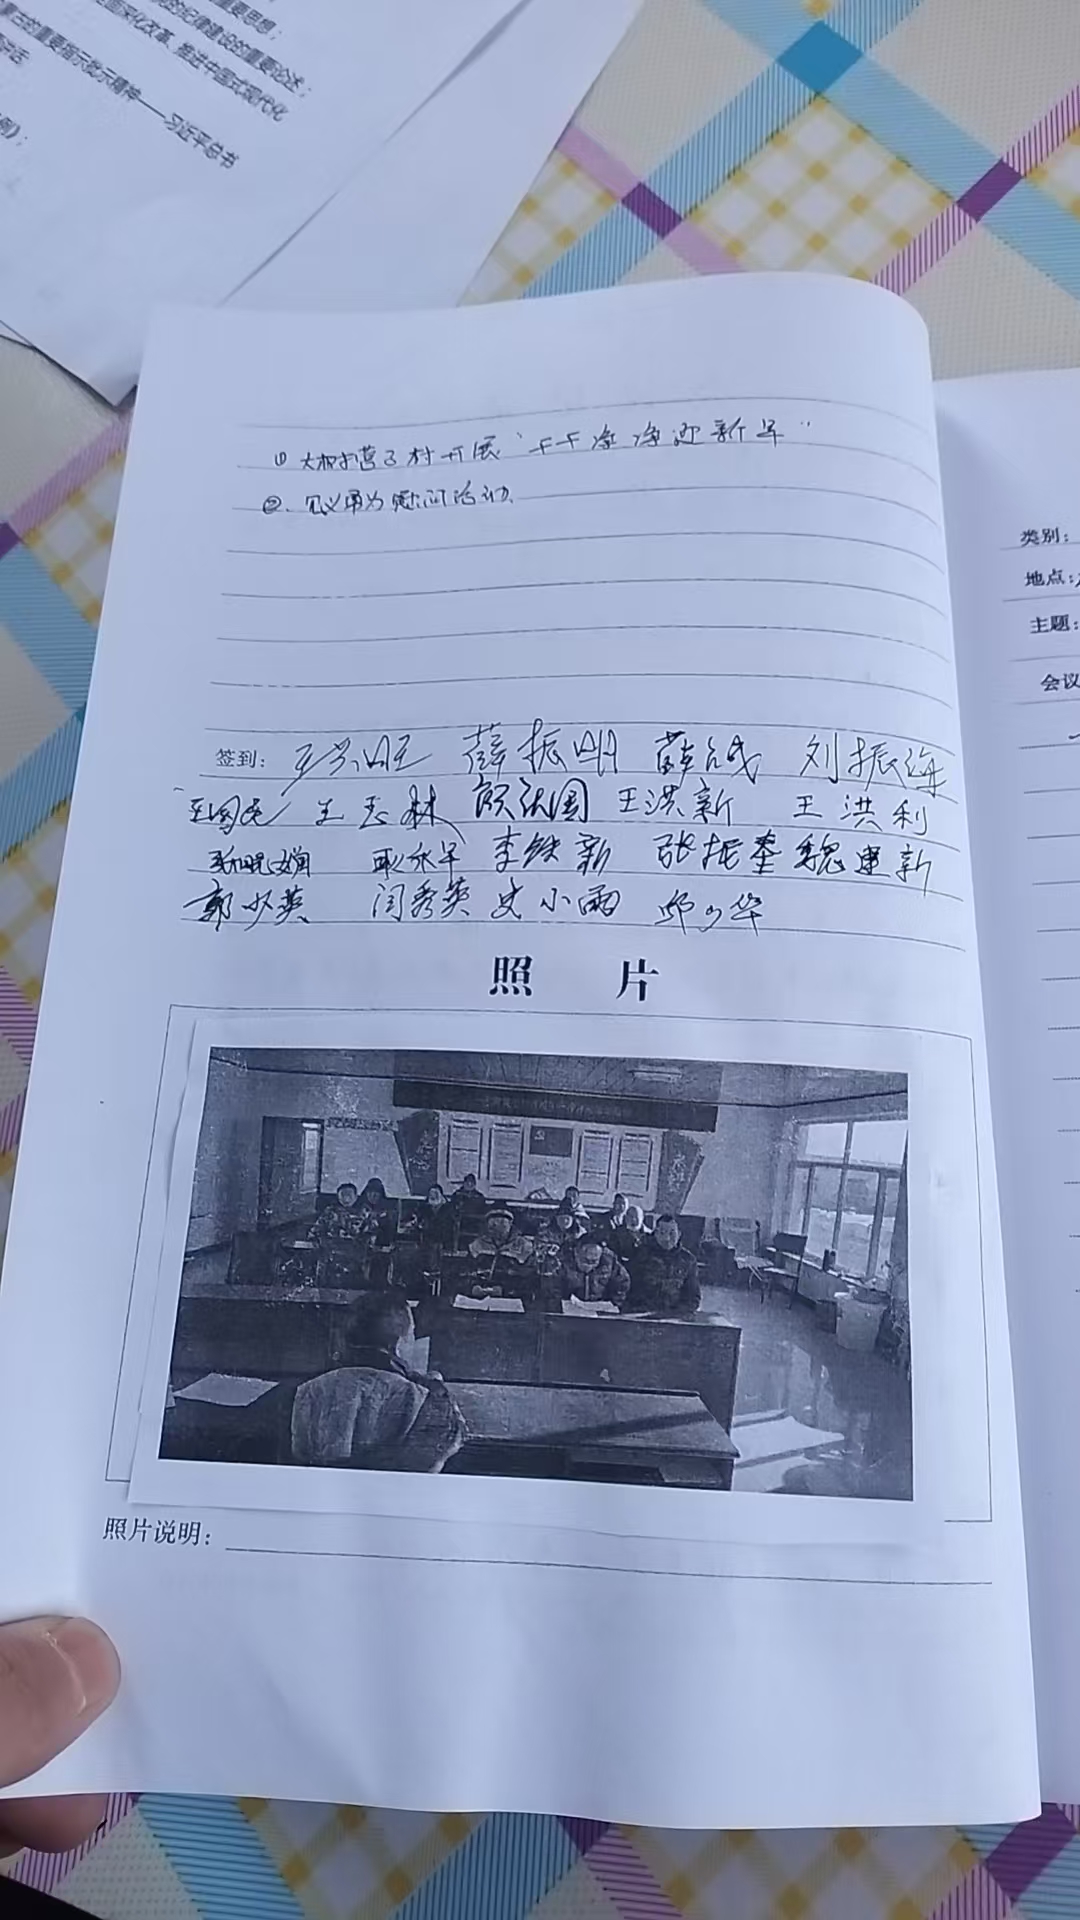 重要思想；
的纪律建设的重要论述；
深化改革、推进中国式现代化
的重要指示批示精神——习近平总书
讲话
例）；
① 大柳树营子村开展“干干净净迎新年”
②、见义勇为慰问活动、
签到：王兴旺 薛振明 薛 刘振海
王国民 王志林 国 王洪新 王洪利
耿永军 李铁新 张振奎 魏建新
郭少英 闫秀英 史小雨 邱少华
照 片
照片说明：
类别：
地点：
主题：
会议